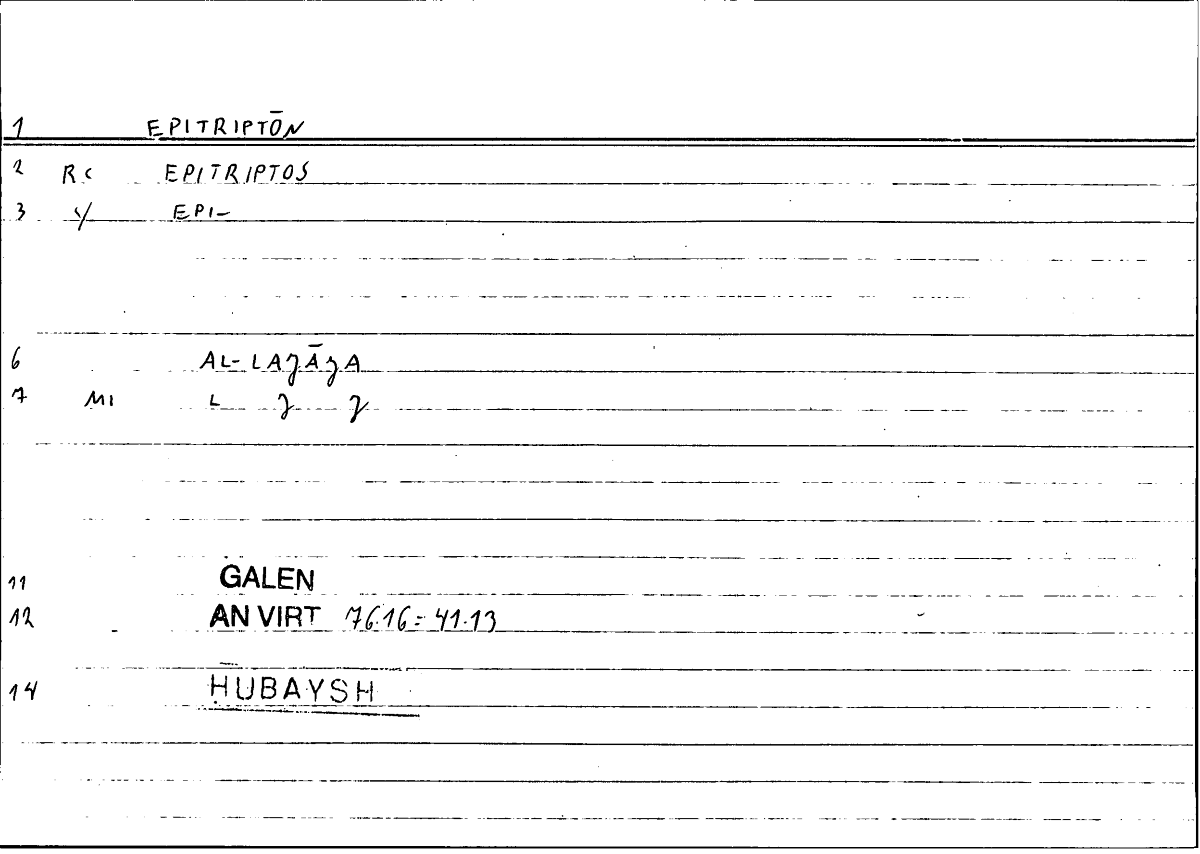 1 EPITRIPTŌN
2 RC EPITRIPTOS
3 EPI-
6 AL-LAʒĀʒA
7 MI L ʒ ʒ
11 GALEN
12 AN VIRT 76.16 = 41.13
14 ḤUBAYSH